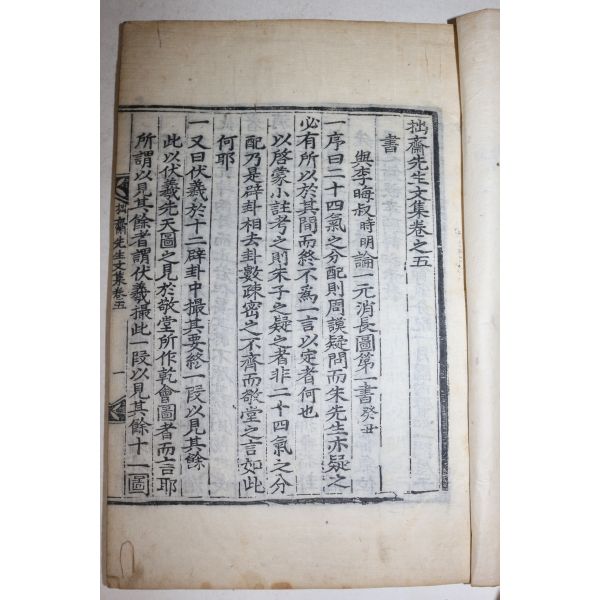 拙齋先生文集卷之五
書
與李晦叔時明論一元消長圖第一書癸丑
一序曰二十四氣之分配則周謨疑問而朱先生亦疑之
必有所以於其間而終不爲一言以定者何也
以啓蒙小註考之則朱子之疑之者非二十四氣之分
配乃是辟卦相去卦數疎密之不齊而敬堂之言如此
何耶
一又曰伏羲於十二辟卦中撮其要終一段以見其餘
此以伏羲先天圖之見於敬堂所作乾會圖者而言耶
所謂以見其餘者謂伏羲撮此一段以見其餘十一圖
拙齋先生文集卷五
一